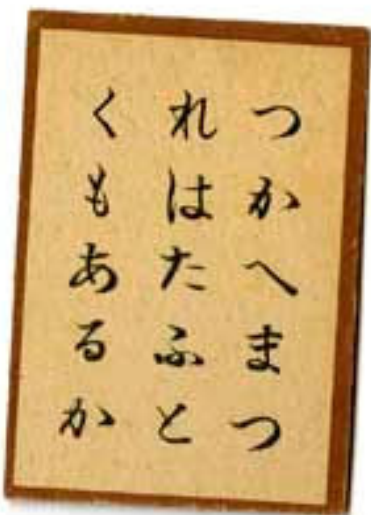 つかへまつ
れはたふと
くもあるか